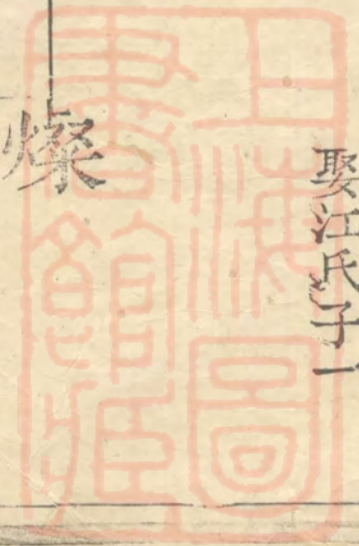 娶江氏子一
燦
上海圖
書館藏